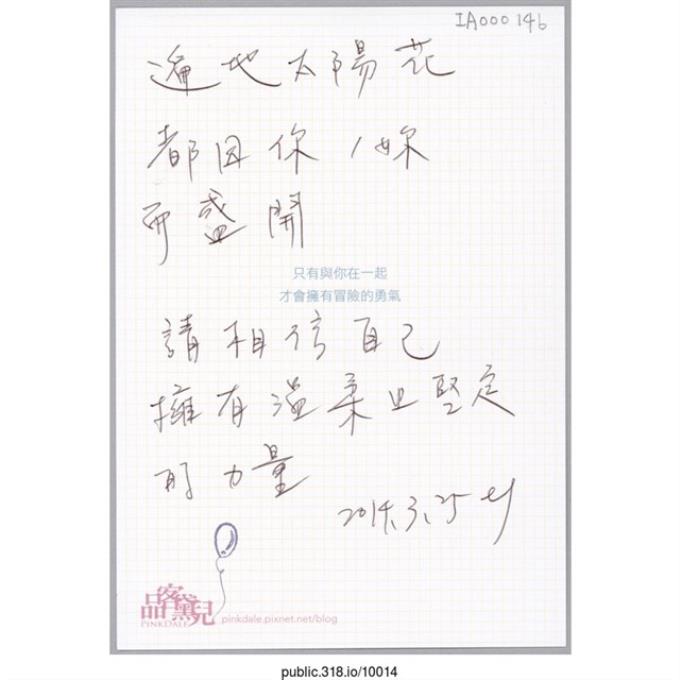 IA000146
遍地太陽花
都因你/妳
而盛開
只有與你在一起
才會擁有冒險的勇氣
請相信自己
擁有溫柔且堅定
的力量
2014.3.25
品客黛兒
PINKDALE
pinkdale.pixnet.net/blog
public.318.io/10014